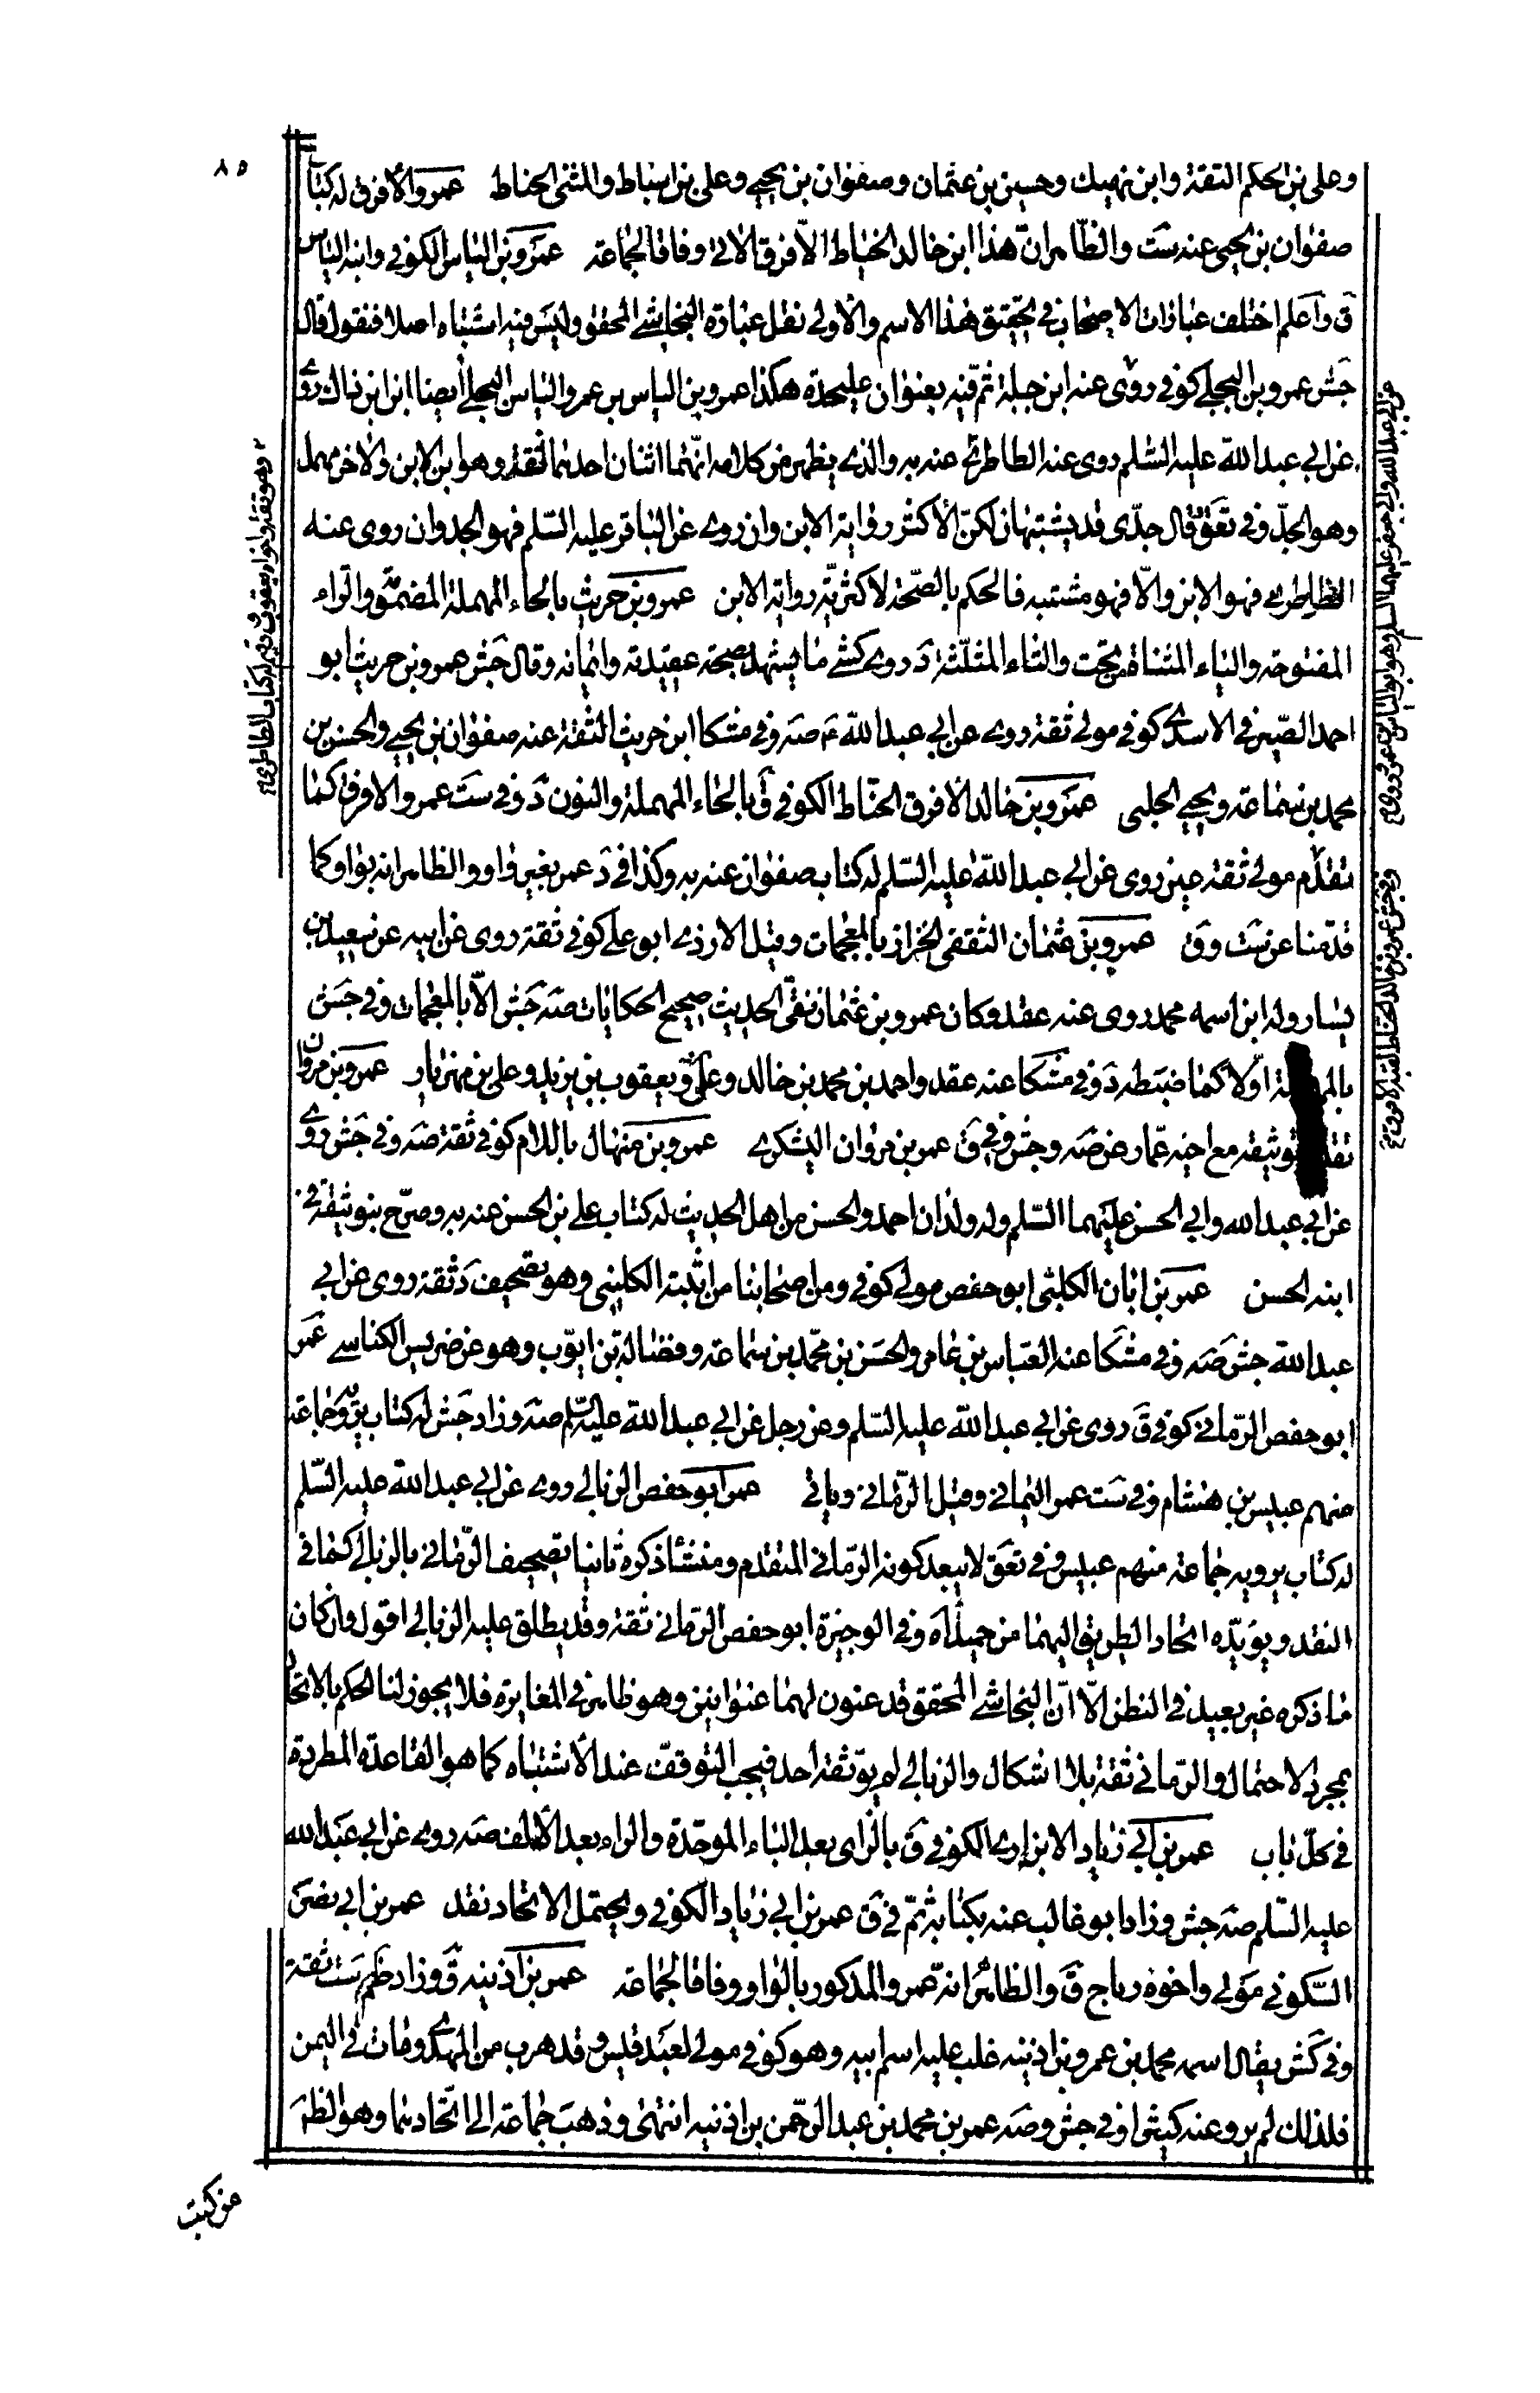 ٨٥
وعلى بن الحكم الثقة وابن نهيك وحسين بن عثمان وصفوان بن يحيى وعلى بن اسباط والمثنى الحناط عمرو الأفرق له كتاب
صفوان بن يحيى عنه ست والظاهر انّ هذا ابن خالد الخياط الأفرق الاتى وفاقا لجماعة عمرو بن الياس الكوفى وابنه الياس
ق واعلم اختلف عبارات الاصحاب فى تحقيق هذا الاسم والأولى نقل عبارة النجاشى المحقق وليس فيه اشتباه اصلا فنقول قال
جش عمرو بن البجلى كوفى روى عنه ابن جبلة ثم فيه بعنوان عليحدة هكذا عمرو بن الياس بن عمرو الياس البجلى أيضا ابن ابن ذاك روى
عن ابى عبد الله عليه السّلم روى عنه الطاطرى عنه به والذى يظهر من كلامه انّهما اثنان احدهما ثقة وهو ابن الابن والاخر مهمل
وهو الجدّ وفى تعق قال جدّى قد يشتبهان لكنّ الأكثر رواية الابن وان روى عن الباقر عليه السّلم فهو الجد وان روى عنه
الطاطرى فهو الابن والّا فهو مشتبه فالحكم بالصّحة لاكثريّة رواية الابن عمرو بن حريث بالحاء المهملة المضمومة والرّاء
المفتوحة والياء المثناة تحت والثاء المثلّثة د روى كشى ما يشهد بصحة عقيدته وايمانه وقال جش عمرو بن حريث ابو
احمد الصّيرفى الاسدى كوفى مولى ثقة روى عن ابى عبد الله ع صه وفى مشكا ابن حريث الثقة عنه صفوان بن يحيى والحسن بن
محمد بن سماعة ويحيى الحلبى عمرو بن خالد الأفرق الحنّاط الكوفى ق بالحاء المهملة والنون د وفى ست عمرو الافرق كما
تقدّم مولى ثقة عين روى عن ابى عبد الله عليه السّلم له كتاب صفوان عنه به وكذا فى د عمر بغير واو والظاهر انه بواو كما
قدّمنا عن ست وق عمرو بن عثمان الثقفى الخزاز بالمعجمات وقيل الازدى ابو على كوفى ثقة روى عن ابيه عن سعيد بن
يسار وله ابن اسمه محمد روى عنه عقد وكان عمرو بن عثمان نقىّ الحديث صحيح الحكايات صه جش الّا بالمعجمات وفى جش
اولا كما ضبطه د وفى مشكا عنه عقد واحمد بن محمد بن خالد وعلى ويعقوب بن يزيد وعلى بن مهزيار عمرو بن مروان
توثيقه مع اخيه عمّار عن صه وجش وفى ق عمر بن مروان اليشكرى عمرو بن منهال باللام كوفى ثقة صه وفى جش روى
عن ابى عبد الله وابى الحسن عليهما السّلم وله ولدان احمد والحسن من اهل الحديث له كتاب على بن الحسن عنه به وصرّح بتوثيقه فى
ابنه الحسن عمر بن ابان الكلبى ابو حفص مولى كوفى ومن اصحابنا من اثبته الكلينى وهو تصحيف د ثقة روى عن ابى
عبد الله جش صه وفى مشكا عنه العباس بن عامر والحسن بن محمّد بن سماعة وفضالة بن ايّوب وهو عن ضريس الكناسى عمر
ابو حفص الرّمانى كوفى ق روى عن ابى عبد الله عليه السّلم وعن رجل عن ابى عبد الله عليه السّلم صه وزاد جش له كتاب يرويه جماعة
منهم عبيس بن هشام وفى ست عمر اليمانى وقيل الرّمانى وياتى عمر ابو حفص الزبالى روى عن ابى عبد الله عليه السّلم
له كتاب يرويه جماعة منهم عبيس وفى تعق لا يبعد كونه الرّمانى المتقدم ومنشأ ذكره ثانيا تصحيف الرّمانى بالزبالى كما فى
النقد ويؤيّده اتحاد الطريق اليهما من حميد آه وفى الوجيزة ابو حفص الرّمانى ثقة وقد يطلق عليه الزبالى اقول وان كان
ما ذكره غير بعيد فى النظر الّا انّ النجاشى المحقق قد عنون لهما عنوانين وهو ظاهر فى المغايرة فلا يجوز لنا الحكم بالاتحاد
بمجرد الاحتمال والرّمانى ثقة بلا اشكال والزبالى لم يوّثقه احد فيجب التوقف عند الأشتباه كما هو القاعدة المطردة
فى كلّ باب عمر بن ابى زياد الابزارى الكوفى ق بالزاى بعد الباء الموحّدة والراء بعد الألف صه روى عن ابى عبد الله
عليه السّلم صه جش وزاد ابو غالب عنه بكتابه ثمّ فى ق عمر بن ابى زياد الكوفى ويحتمل الاتحاد نقد عمر بن ابى نصر
السّكونى مولى واخوه رباح ق والظاهر انه عمرو المذكور بالواو وفاقا لجماعة عمر بن اذينه ق وزاد ظم ست ثقة
وفى كش يقال اسمه محمد بن عمر بن اذينه غلب عليه اسم ابيه وهو كوفى مولى لعبد قيس وقد هرب من المهدى ومات فى اليمن
فلذلك لم يرو عنه كثيرا وفى جش وصه عمر بن محمد بن عبد الرّحمن بن اذنيه انتهى وذهب جماعة الى اتّحادهما وهو الظهر
من كتب